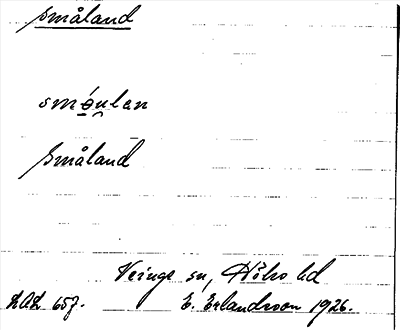 småland
småulan
Småland
Veinge sn, Höks hd
LAL 657. E. Erlandsson 1926.